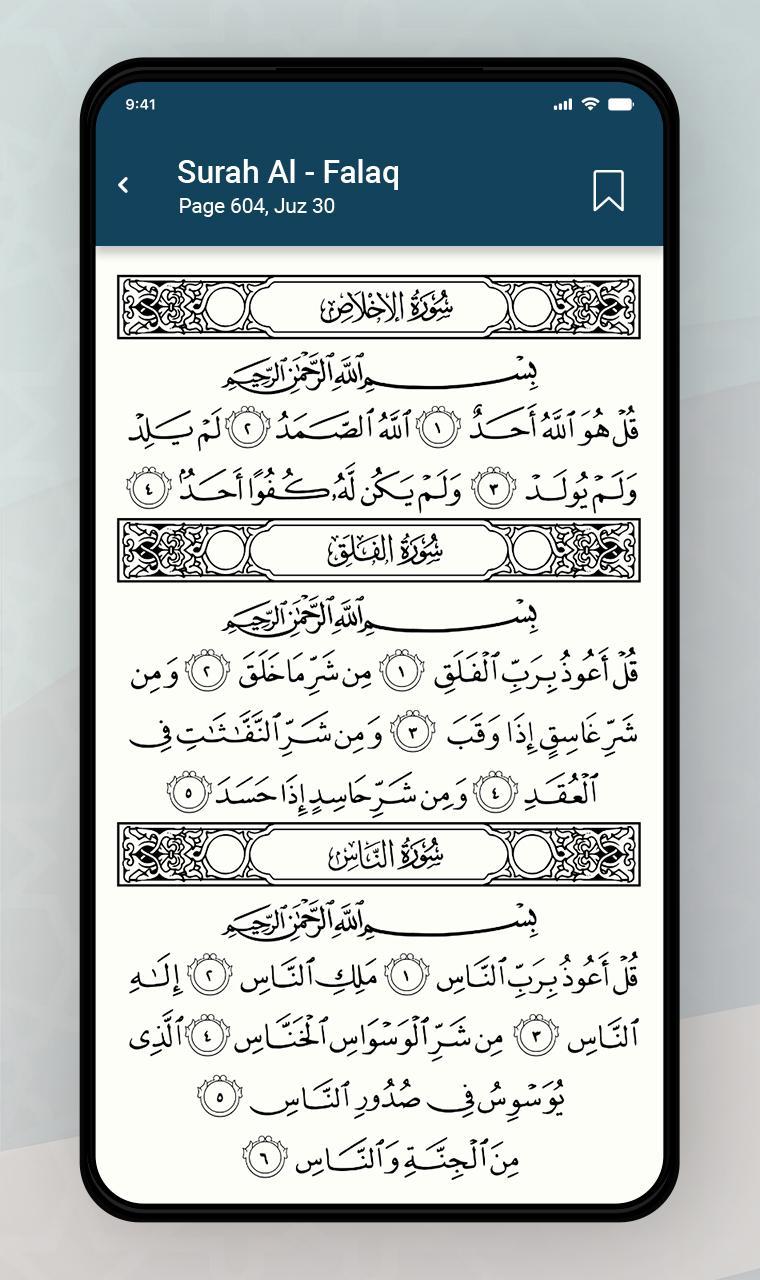 9:41
Surah Al - Falaq
Page 604, Juz 30
سُورَةُ الإِخْلَاصِ
بِسْمِ ٱللَّهِ ٱلرَّحْمَٰنِ ٱلرَّحِيمِ
قُلْ هُوَ ٱللَّهُ أَحَدٌ ١ ٱللَّهُ ٱلصَّمَدُ ٢ لَمْ يَلِدْ
وَلَمْ يُولَدْ ٣ وَلَمْ يَكُن لَّهُۥ كُفُوًا أَحَدٌۢ ٤
سُورَةُ الفَلَقِ
بِسْمِ ٱللَّهِ ٱلرَّحْمَٰنِ ٱلرَّحِيمِ
قُلْ أَعُوذُ بِرَبِّ ٱلْفَلَقِ ١ مِن شَرِّ مَا خَلَقَ ٢ وَمِن
شَرِّ غَاسِقٍ إِذَا وَقَبَ ٣ وَمِن شَرِّ ٱلنَّفَّٰثَٰتِ فِى
ٱلْعُقَدِ ٤ وَمِن شَرِّ حَاسِدٍ إِذَا حَسَدَ ٥
سُورَةُ النَّاسِ
بِسْمِ ٱللَّهِ ٱلرَّحْمَٰنِ ٱلرَّحِيمِ
قُلْ أَعُوذُ بِرَبِّ ٱلنَّاسِ ١ مَلِكِ ٱلنَّاسِ ٢ إِلَٰهِ
ٱلنَّاسِ ٣ مِن شَرِّ ٱلْوَسْوَاسِ ٱلْخَنَّاسِ ٤ ٱلَّذِى
يُوَسْوِسُ فِى صُدُورِ ٱلنَّاسِ ٥
مِنَ ٱلْجِنَّةِ وَٱلنَّاسِ ٦